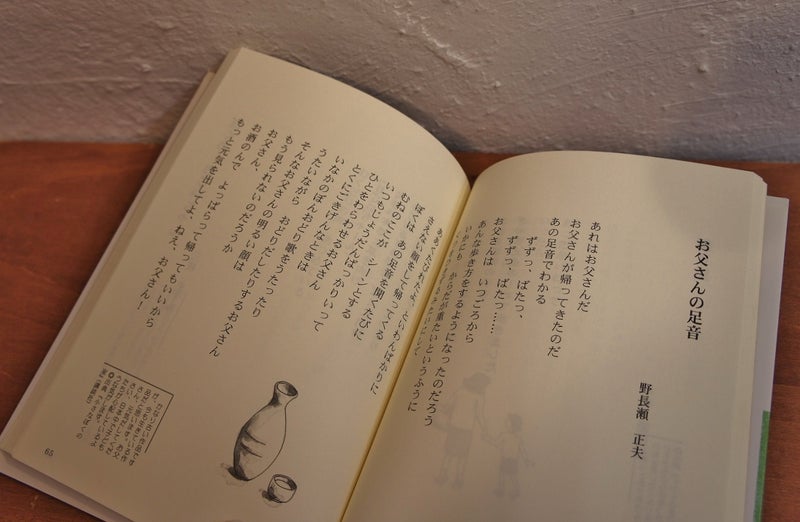 お父さんの足音
野長瀬 正夫
あれはお父さんだ
お父さんが帰ってきたのだ
あの足音でわかる
ずずっ、ばたっ、
ずずっ、ばたっ……
お父さんは いつごろから
あんな歩き方をするようになったのだろう
いかにも からだが重たいというふうに
ああ、くたびれたよ、といわんばかりに
さえない顔をして帰ってくる
ぼくは あの足音を聞くたびに
むねのここが シーンとする
いつもじょうだんばっかりいって
ひとをわらわせるお父さん
とくにごきげんなときは
いなかのぼんおどり歌をうたったり
うたいながら おどりだしたりするお父さん
そんなお父さんの明るい顔は
もう見られないのだろうか
お父さん、
お酒のんで よっぱらって帰ってもいいから
もっと元気を出してよ、ねえ、お父さん!
65